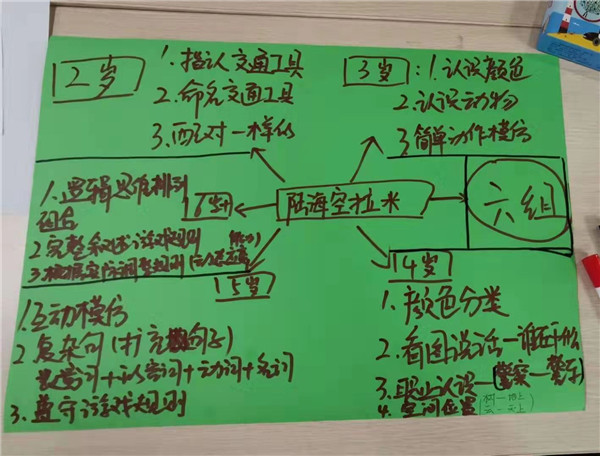 2岁
1.指认交通工具
2.命名交通工具
3.配对一样的
3岁:1.认识颜色
2.认识动物
3.简单动作模仿
陆海空拉米
六组
6岁+
1.逻辑思维排列
组合
2.完整叙述游戏规则
3.根据实际调整规则
5岁
1.互动模仿
2.复杂句(扩充句子)
数量词+形容词+动词+名词
3.遵守游戏规则
4岁
1.颜色分类
2.看图说话一谁在干什么
3.职业认识一(警察一警车
4.空间位置